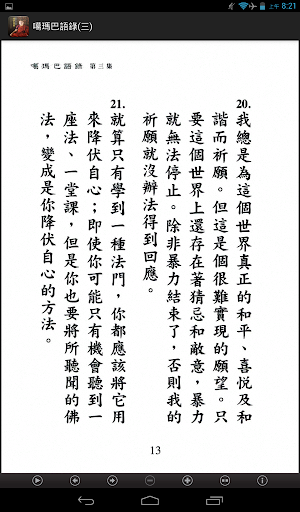 8:21
噶瑪巴語錄(三)
噶瑪巴語錄 第三集
20.
我總是為這個世界真正的和平、喜悅及和
諧而祈願。但這是個很難實現的願望。只
要這個世界上還存在著猜忌和敵意，暴力
就無法停止。除非暴力結束了，否則我的
祈願就沒辦法得到回應。
21.
就算只有學到一種法門，你都應該將它用
來降伏自心；即使你可能只有機會聽到一
座法、一堂課，但是你也要將所聽聞的佛
法，變成是你降伏自心的方法。
13